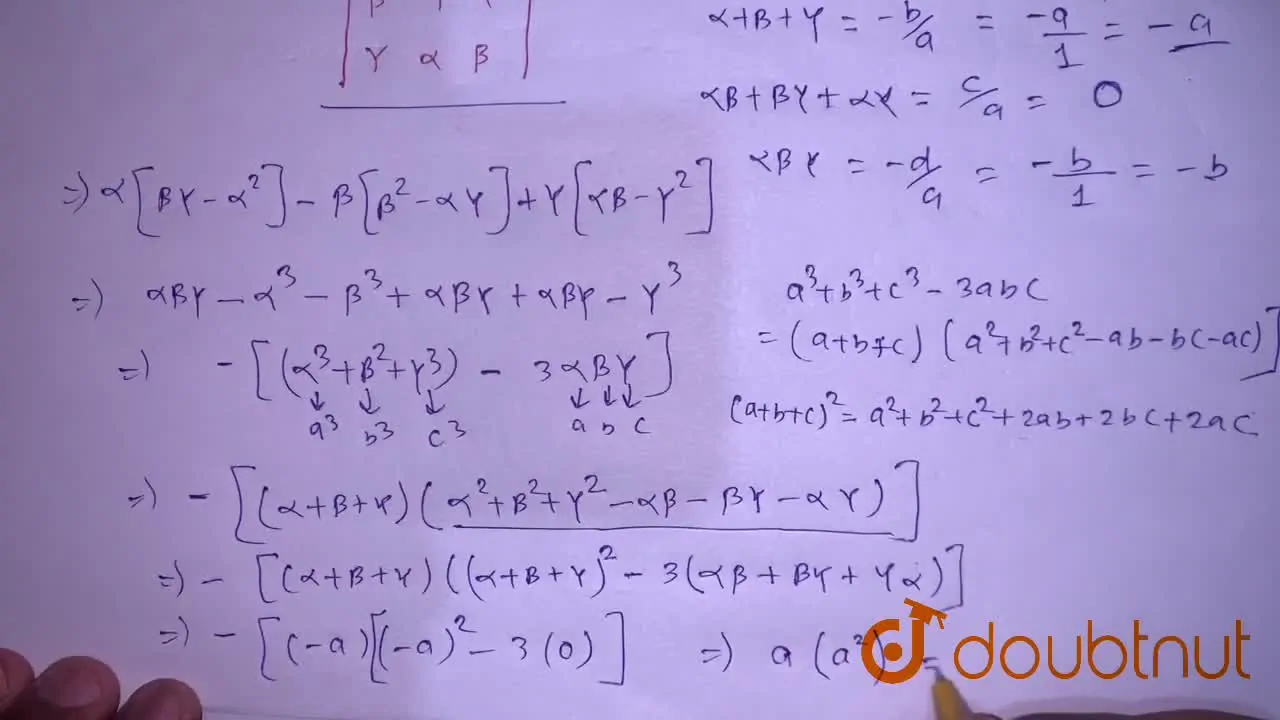 α+β+γ = -b/a = -a/1 = -a
γ α β
αβ+βγ+αγ = c/a = 0
αβγ = -d/a = -b/1 = -b
=) α[βγ-α²]-β[β²-αγ]+γ[αβ-γ²]
=) αβγ-α³-β³+αβγ+αβγ-γ³
a³+b³+c³-3abc
= (a+b+c) (a²+b²+c²-ab-bc-ac)]
=) -[(α³+β²+γ³) - 3αβγ]
a³ b³ c³ a b c
(a+b+c)² = a²+b²+c²+2ab+2bc+2ac
=) -[(α+β+γ)(α²+β²+γ²-αβ-βγ-αγ)]
=) -[(α+β+γ)((α+β+γ)²-3(αβ+βγ+γα)]
=) -[(-a)[(-a)²-3(0)] =) a(a²) =
doubtnut